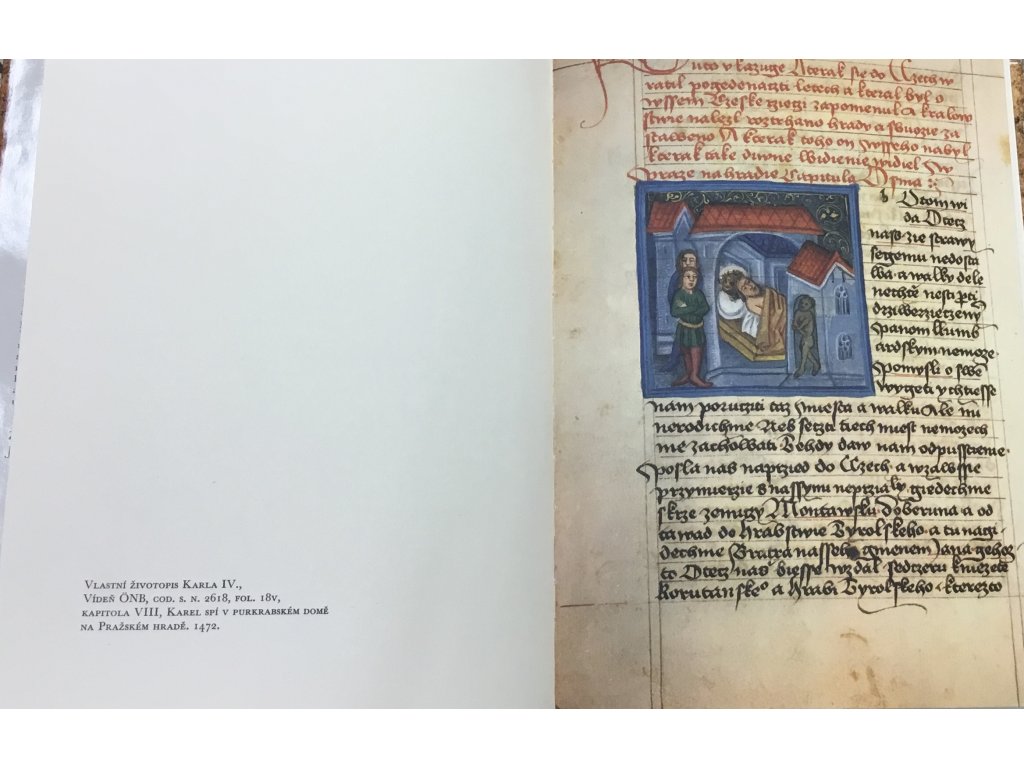 Vlastní životopis Karla IV.,
Vídeň ÖNB, cod. s. n. 2618, fol. 18v,
kapitola VIII, Karel spí v purkrabském domě
na Pražském hradě. 1472.
Tuto vkazuge Kterak sie do Czech w
ratil pogedenatzti letech a kterak byl o
wssem Czeske rzieczi zapomenul A kralow
stwie nalezl roztrhano hrady a sbuozie za
staweno A kterak toho on wsseho nabyl
kterak take diwne widienie widiel w
Praze na hradie Capitula Osma
Otom wi
da Otecz
nas zie strawy
segemu nedosta
wa a walky dele
nechtě nesti prti
drziwerzieczeny
panom lkumb
ardskym nemoze
Spomysli o swe
wygeti y chtiesse
nam porucziti taz miesta a walku Ale my
nerodichme Nes setzti tiech miest nemozech
me zachowati Tehdy daw nam odpusstienie
Posla nas naprzied do Czech a wzawssie
przymierzie s nassymi neprzialy giedechme
skrze zemi gy Montawsku doberuna a od
tawad do hrabstwie Tyrolskeho a tu nagi
dechme Bratra nasseho gmenem Jana gehoz
to Otecz nas biesse wzdal sedtzeru kniezete
Korutanskeo a hrabi Tyrolskeho kterezto